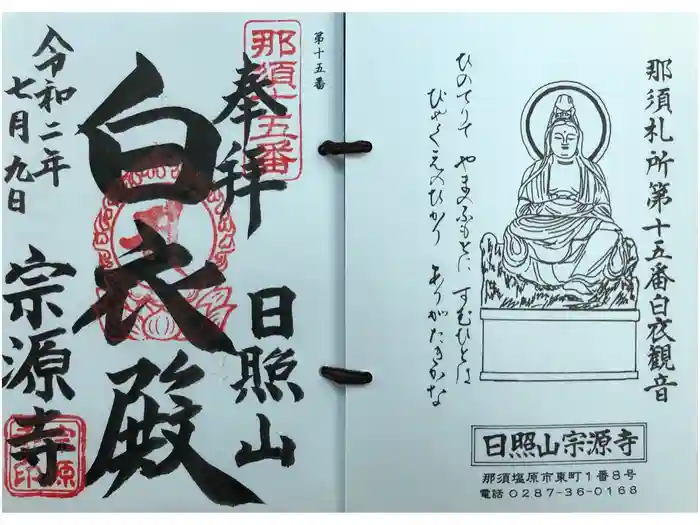 那須札所第十五番白衣観音
ひのてりて やまのふもとに すむひとは
びやくえのひかり ありがたきかな
日照山宗源寺
那須塩原市東町1番8号
電話0287-36-0168
第十五番
那須十五番
奉拝
日照山
白衣殿
令和二年
七月九日
宗源寺